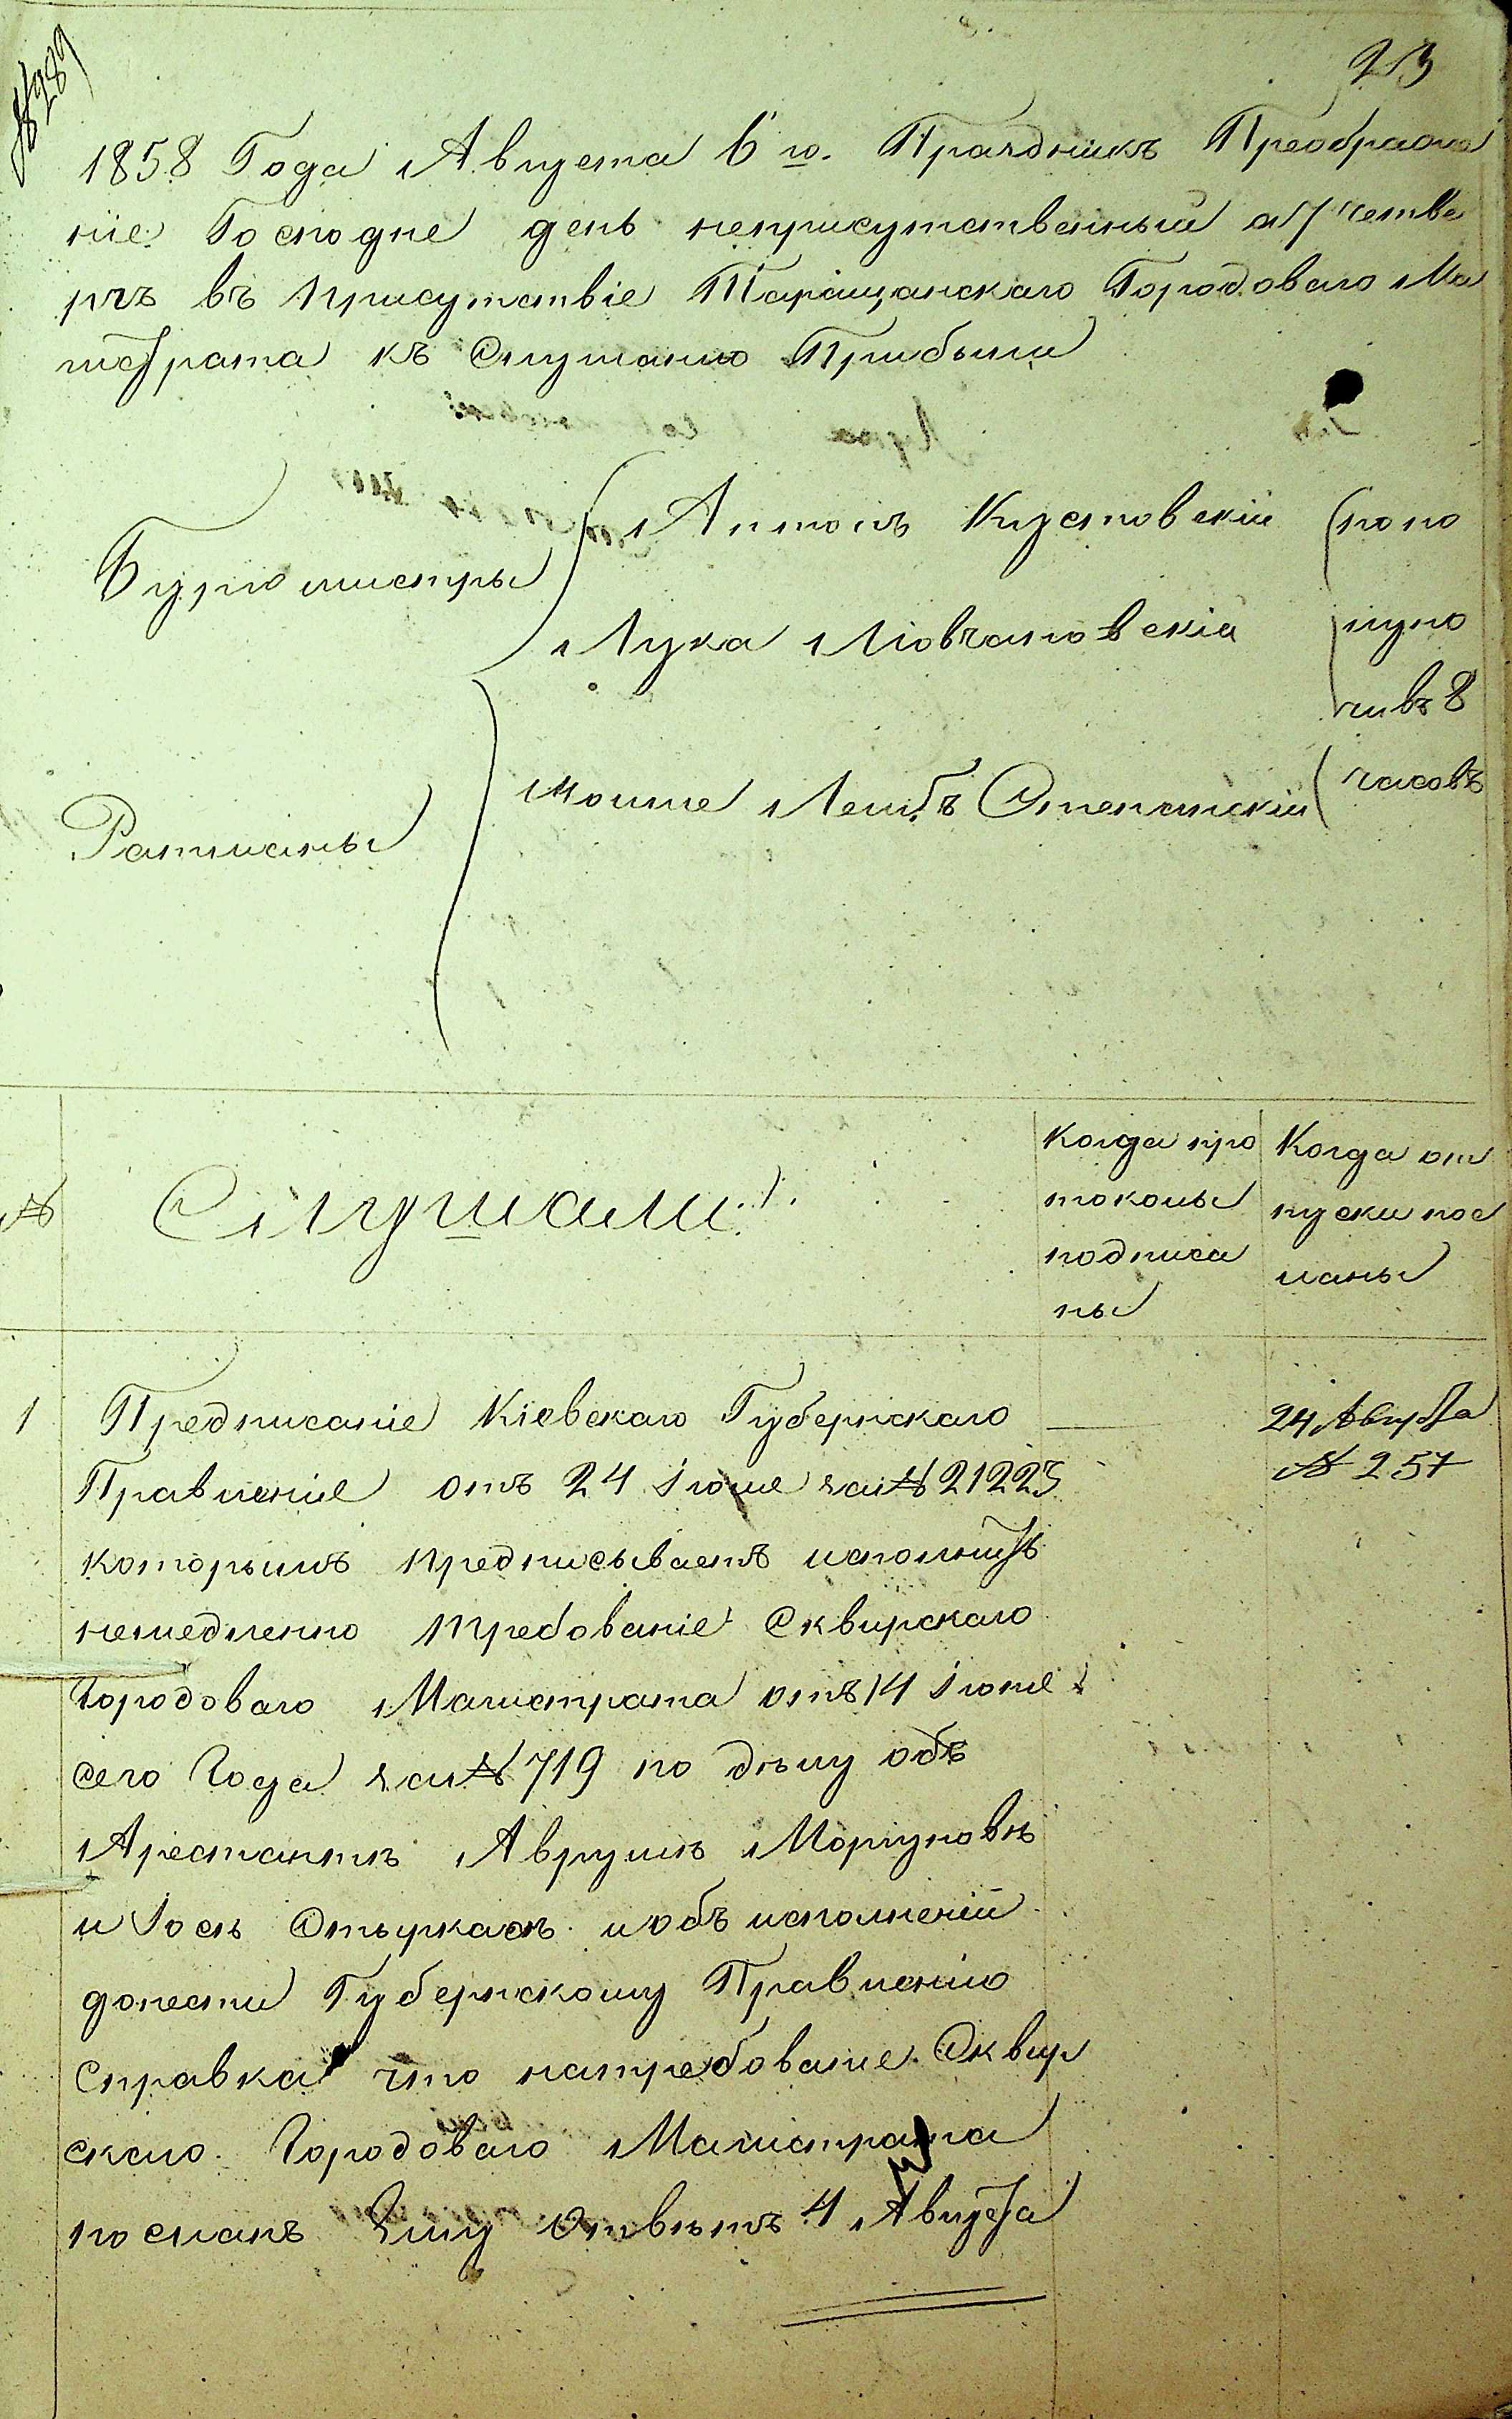 № 289
23
1858 Года Августа 6го. Праздникъ Преображе
ніе Господне день неприсутственный а 7 четве
ргъ въ присутствіе Таращанскаго Городоваго Ма
гистрата къ Слушанію Прибыли
Бургомистры
Антонъ Кустовскій
Лука Мовчановскій
Ратманы
Мошко Лейбъ Степанскій
попо
лупо
чивъ 8
часовъ
№
Слушали:
Когда про
токолы
подписа
ны
Когда от
пуски пос
ланы
1
Предписаніе Кіевскаго Губернскаго
Правленіе отъ 24 Іюле за № 21223
которымъ предписываетъ исполнить
немедленно требованіе Сквирскаго
Городоваго Магистрата отъ 14 Іюне
сего Года за № 719 по дѣлу объ
Арестантѣ Аврумѣ Моргуновѣ
и Іосѣ и объ исполненій
донести Губернскому Правленію
Справка что натребование Сквир
скаго Городоваго Магистрата
посланъ Ему Отвѣтъ 4 Августа
24 Августа
№ 257